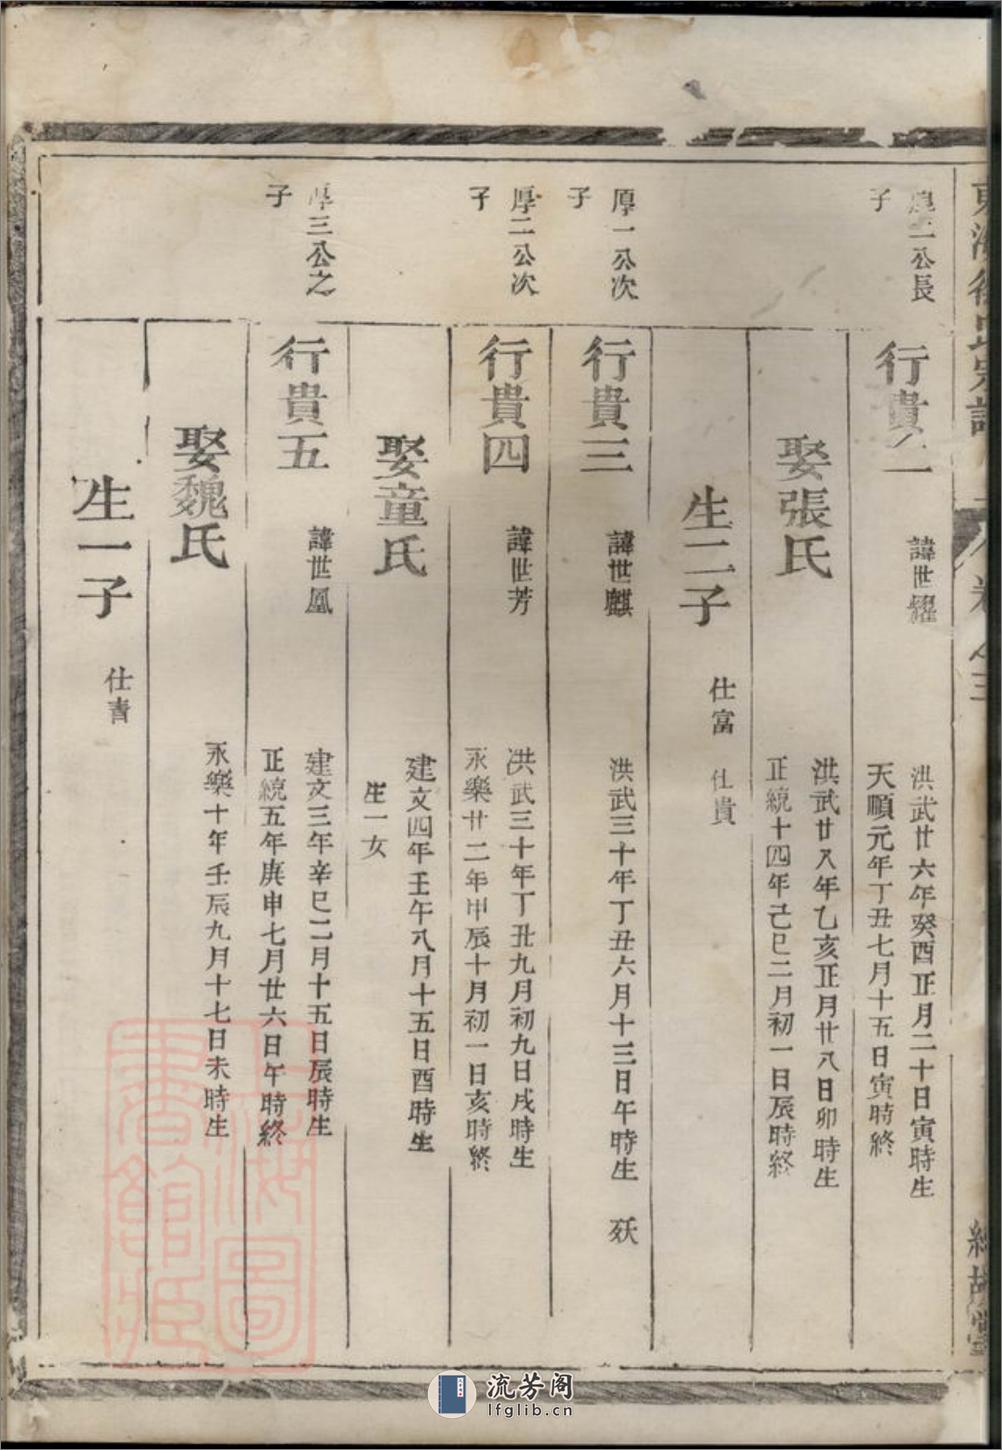 東海徐氏宗譜
卷之三
厚二公長
子
行貴二
諱世耀
洪武廿六年癸酉正月二十日寅時生
天順元年丁丑七月十五日寅時終
娶張氏
洪武廿八年乙亥正月廿八日卯時生
正統十四年己巳二月初一日辰時終
生二子
仕富 仕貴
厚一公次
子
行貴三
諱世麒
洪武三十年丁丑六月十三日午時生 殀
厚二公次
子
行貴四
諱世芳
洪武三十年丁丑九月初九日戌時生
永樂廿二年甲辰十月初一日亥時終
娶童氏
建文四年壬午八月十五日酉時生
生一女
厚三公之
子
行貴五
諱世鳳
建文三年辛巳二月十五日辰時生
正統五年庚申七月廿六日午時終
娶魏氏
永樂十年壬辰九月十七日未時生
生一子
仕青
上海圖
書館藏
流芳阁
lfglib.cn